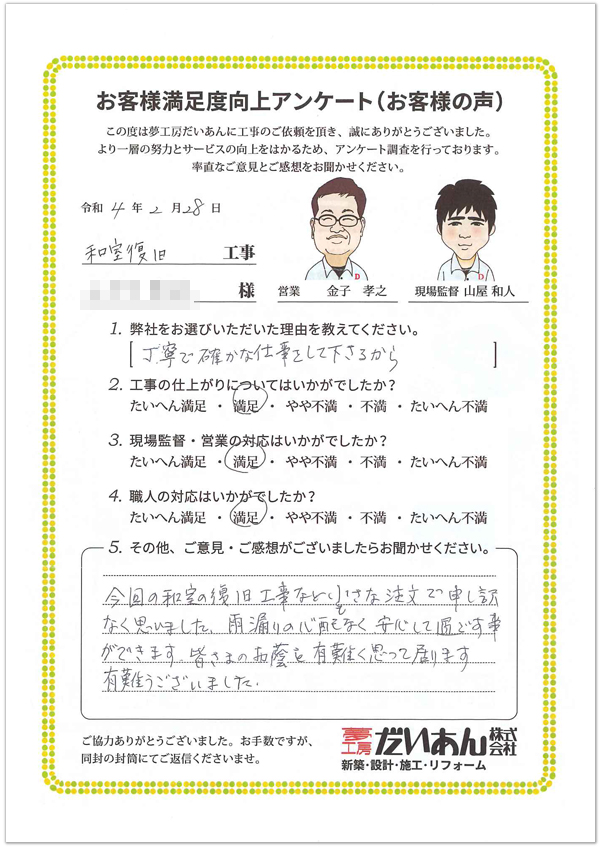 お客様満足度向上アンケート(お客様の声)
この度は夢工房だいあんに工事のご依頼を頂き、誠にありがとうございました。
より一層の努力とサービスの向上をはかるため、アンケート調査を行っております。
率直なご意見とご感想をお聞かせください。
令和 4 年 2 月 28 日
和室復旧 工事
様
営業 金子 孝之
現場監督 山屋 和人
D
D
1. 弊社をお選びいただいた理由を教えてください。
[丁寧で確かな仕事をして下さるから]
2. 工事の仕上がりについてはいかがでしたか?
たいへん満足 ・ 満足 ・ やや不満 ・ 不満 ・ たいへん不満
3. 現場監督・営業の対応はいかがでしたか?
たいへん満足 ・ 満足 ・ やや不満 ・ 不満 ・ たいへん不満
4. 職人の対応はいかがでしたか?
たいへん満足 ・ 満足 ・ やや不満 ・ 不満 ・ たいへん不満
5. その他、ご意見・ご感想がございましたらお聞かせください。
今回の和室の復旧工事など小さな注文で申し訳
なく思いました。雨漏りの心配もなく安心して過ごす事
ができます。皆さまのお蔭と有難く思って居ります
有難うございました。
ご協力ありがとうございました。お手数ですが、
同封の封筒にてご返信くださいませ。
夢工房 だいあん 株式会社
新築・設計・施工・リフォーム